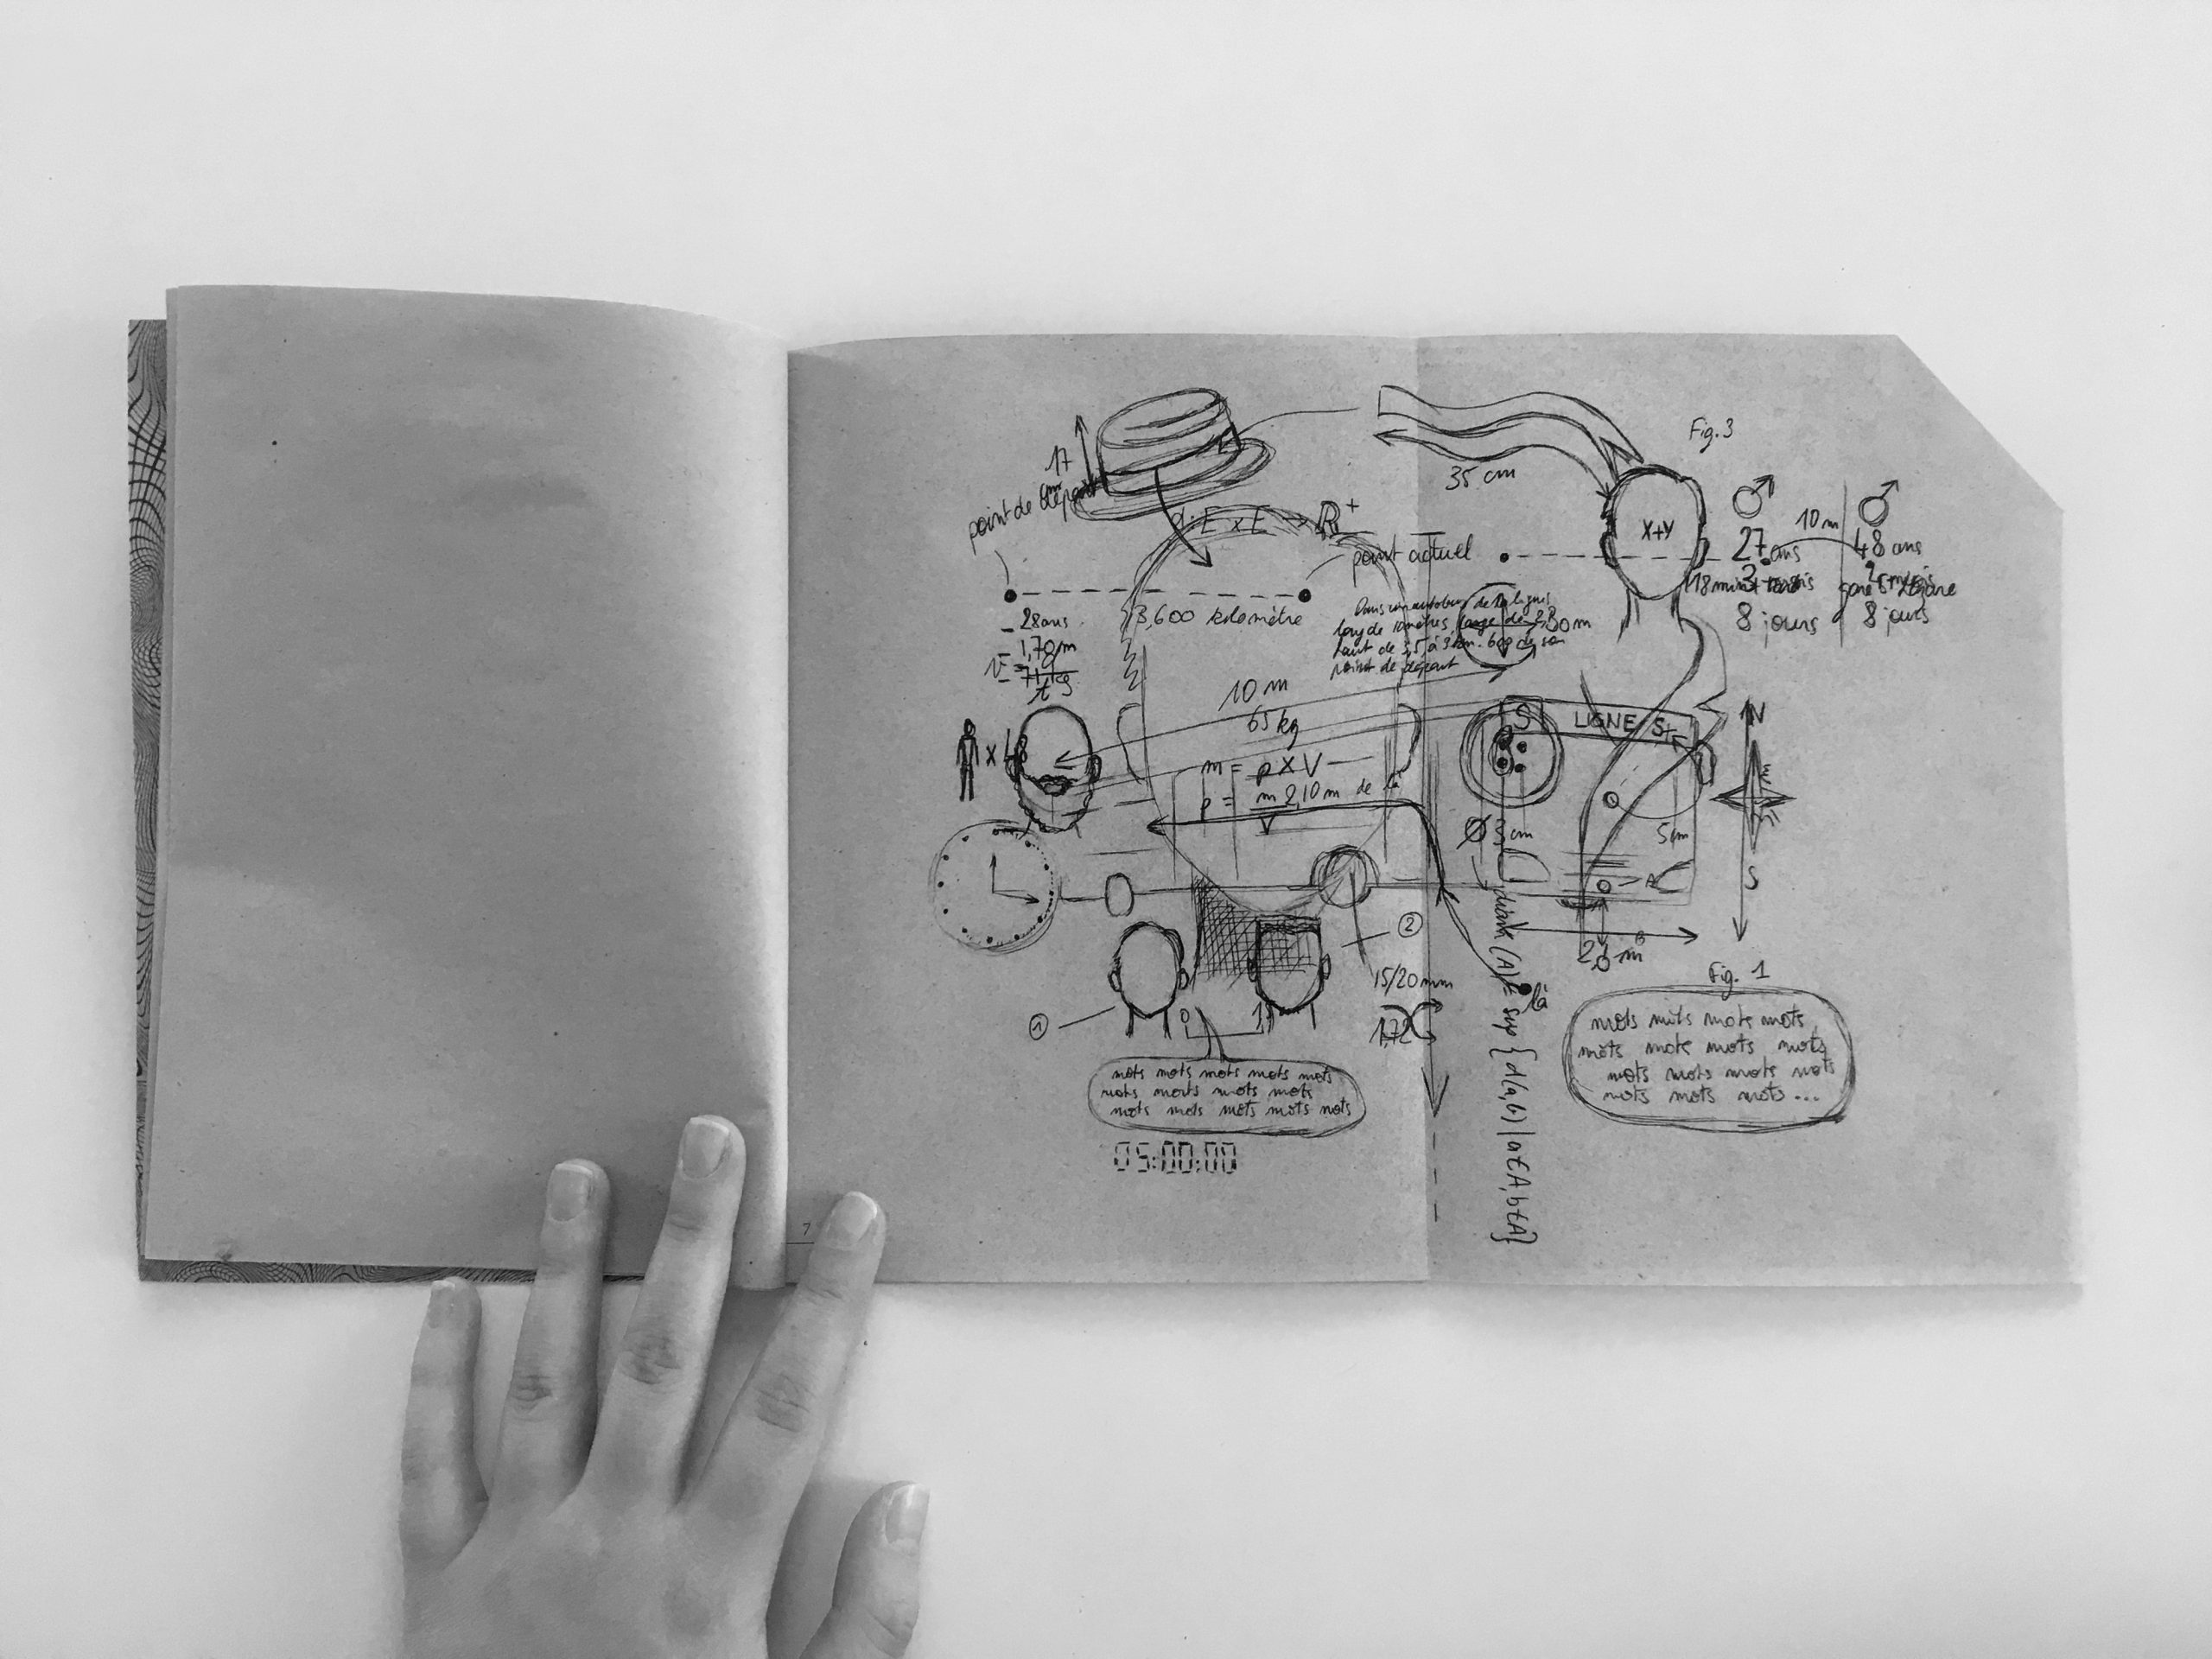 Fig. 3
17
35 cm
point de départ
d: E x E → R+
X+Y
27 ans
10 m
48 ans
point actuel
3,600 kilomètre
8 jours
8 jours
28 ans
1,70 m
71 kg
t
Dans un autobus de la ligne S
long de 10 mètres, large de
haut de 3,5 à 3 km. 600 de son
point de départ
10 m
65 kg
S
LIGNE S
N
x 48
m = p x V
p = m 2,10 m de là
V
3 cm
5 cm
A
S
2
B
m
15/20 mm
1
0
1
1,72
là
Fig. 1
diam (A) = sup {d(a,b) | a∈A, b∈A}
mots mots mots mots
mots mots mots mots
mots mots mots mots
mots mots mots...
mots mots mots mots mots
mots mots mots mots
mots mots mots mots mots
05:00:00
7